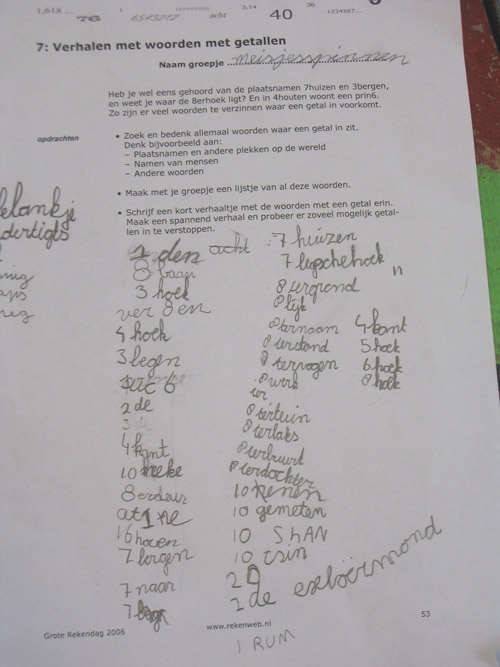 1,618...
76
6543212
acht
3,14
40
36
1234567...
7: Verhalen met woorden met getallen
Naam groepje meisjesspinnen
Heb je wel eens gehoord van de plaatsnamen 7huizen en 3bergen,
en weet je waar de 8erhoek ligt? En in 4houten woont een prin6.
Zo zijn er veel woorden te verzinnen waar een getal in voorkomt.
opdrachten
• Zoek en bedenk allemaal woorden waar een getal in zit.
Denk bijvoorbeeld aan:
– Plaatsnamen en andere plekken op de wereld
– Namen van mensen
– Andere woorden
• Maak met je groepje een lijstje van al deze woorden.
• Schrijf een kort verhaaltje met de woorden met een getal erin.
Maak een spannend verhaal en probeer er zoveel mogelijk getal-
len in te verstoppen.
elankje
dertigts
1 den acht
8 baan
3 hoek
ver 8 en
4 hoek
3 legen
2 de
4 kant
10 neke
8 erdeur
at1ne
16 hoven
7 bergen
7 naar
7 huizen
8 ergrond
8 lijk
8 ternaam
8 erstand
8 terwagen
8 werk
8 tertuin
8 terlaks
8 erbuurt
8 terdochter
10 kenen
10 gemeten
10 SHAN
10 tsin
2 D
2 de exloërmond
4 kant
5 hoek
6 hoek
8 hoek
1 RUM
Grote Rekendag 2006
www.rekenweb.nl
53